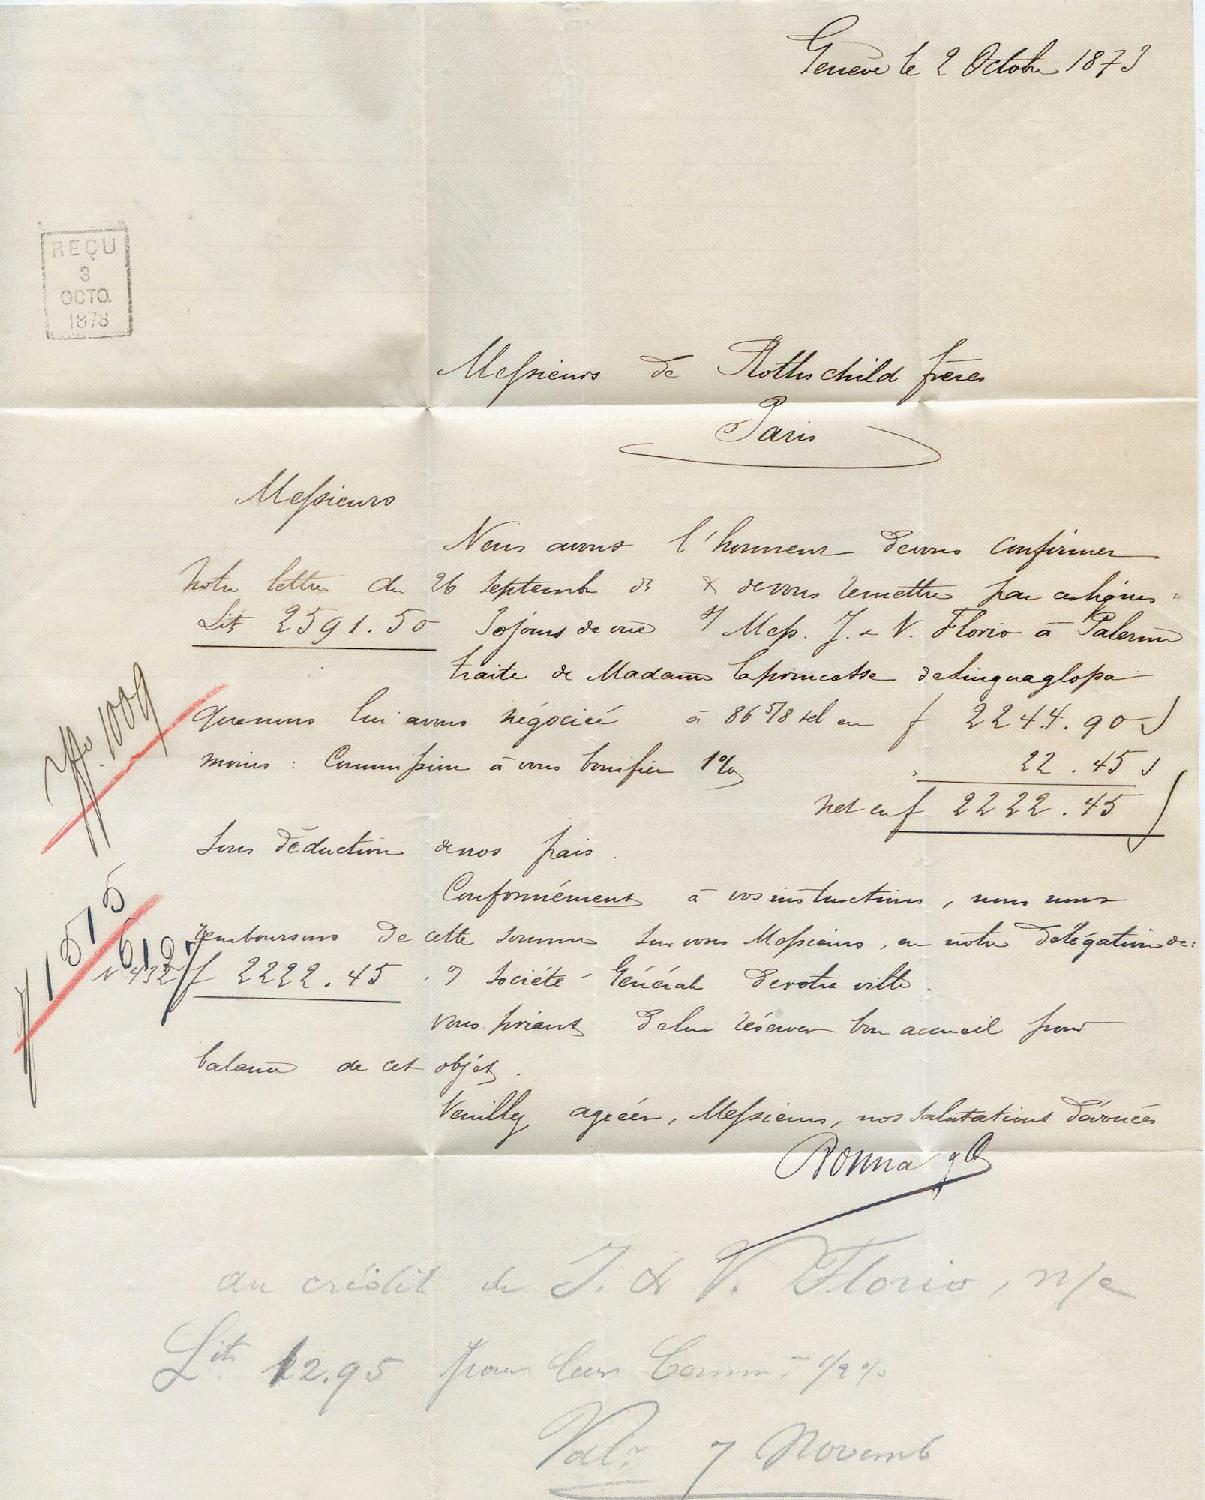 Genève le 2 Octobre 1873
REÇU
3
OCTO.
1873
Messieurs de Rothschild frères
Paris
Messieurs
Nous avons l'honneur de vous confirmer
notre lettre du 26 septemb & de vous remettre par ces lignes
Lit 2591.50 30 jours de vue s/ Mess. J. & V. Florio à Palerme
traite de Madame la princesse de Linguaglossa
que nous lui avons négociée à 86 5/8 en f 2244.90
moins : Commission à vous bonifier 1% 22.45
net en f 2222.45
sous déduction de nos frais.
Conformément à vos instructions, nous nous
remboursons de cette somme sur vous Messieurs, en notre délégation de
f 2222.45 Société Générale de votre ville.
vous priant de lui réserver bon accueil pour
balance de cet objet.
Veuillez agréer, Messieurs, nos salutations dévouées
Bonna & C
1009
1515
au crédit de J. & V. Florio, n/c
Lit. 12.95 pour leur Comm. 1/2 %
Val. 7 Novemb